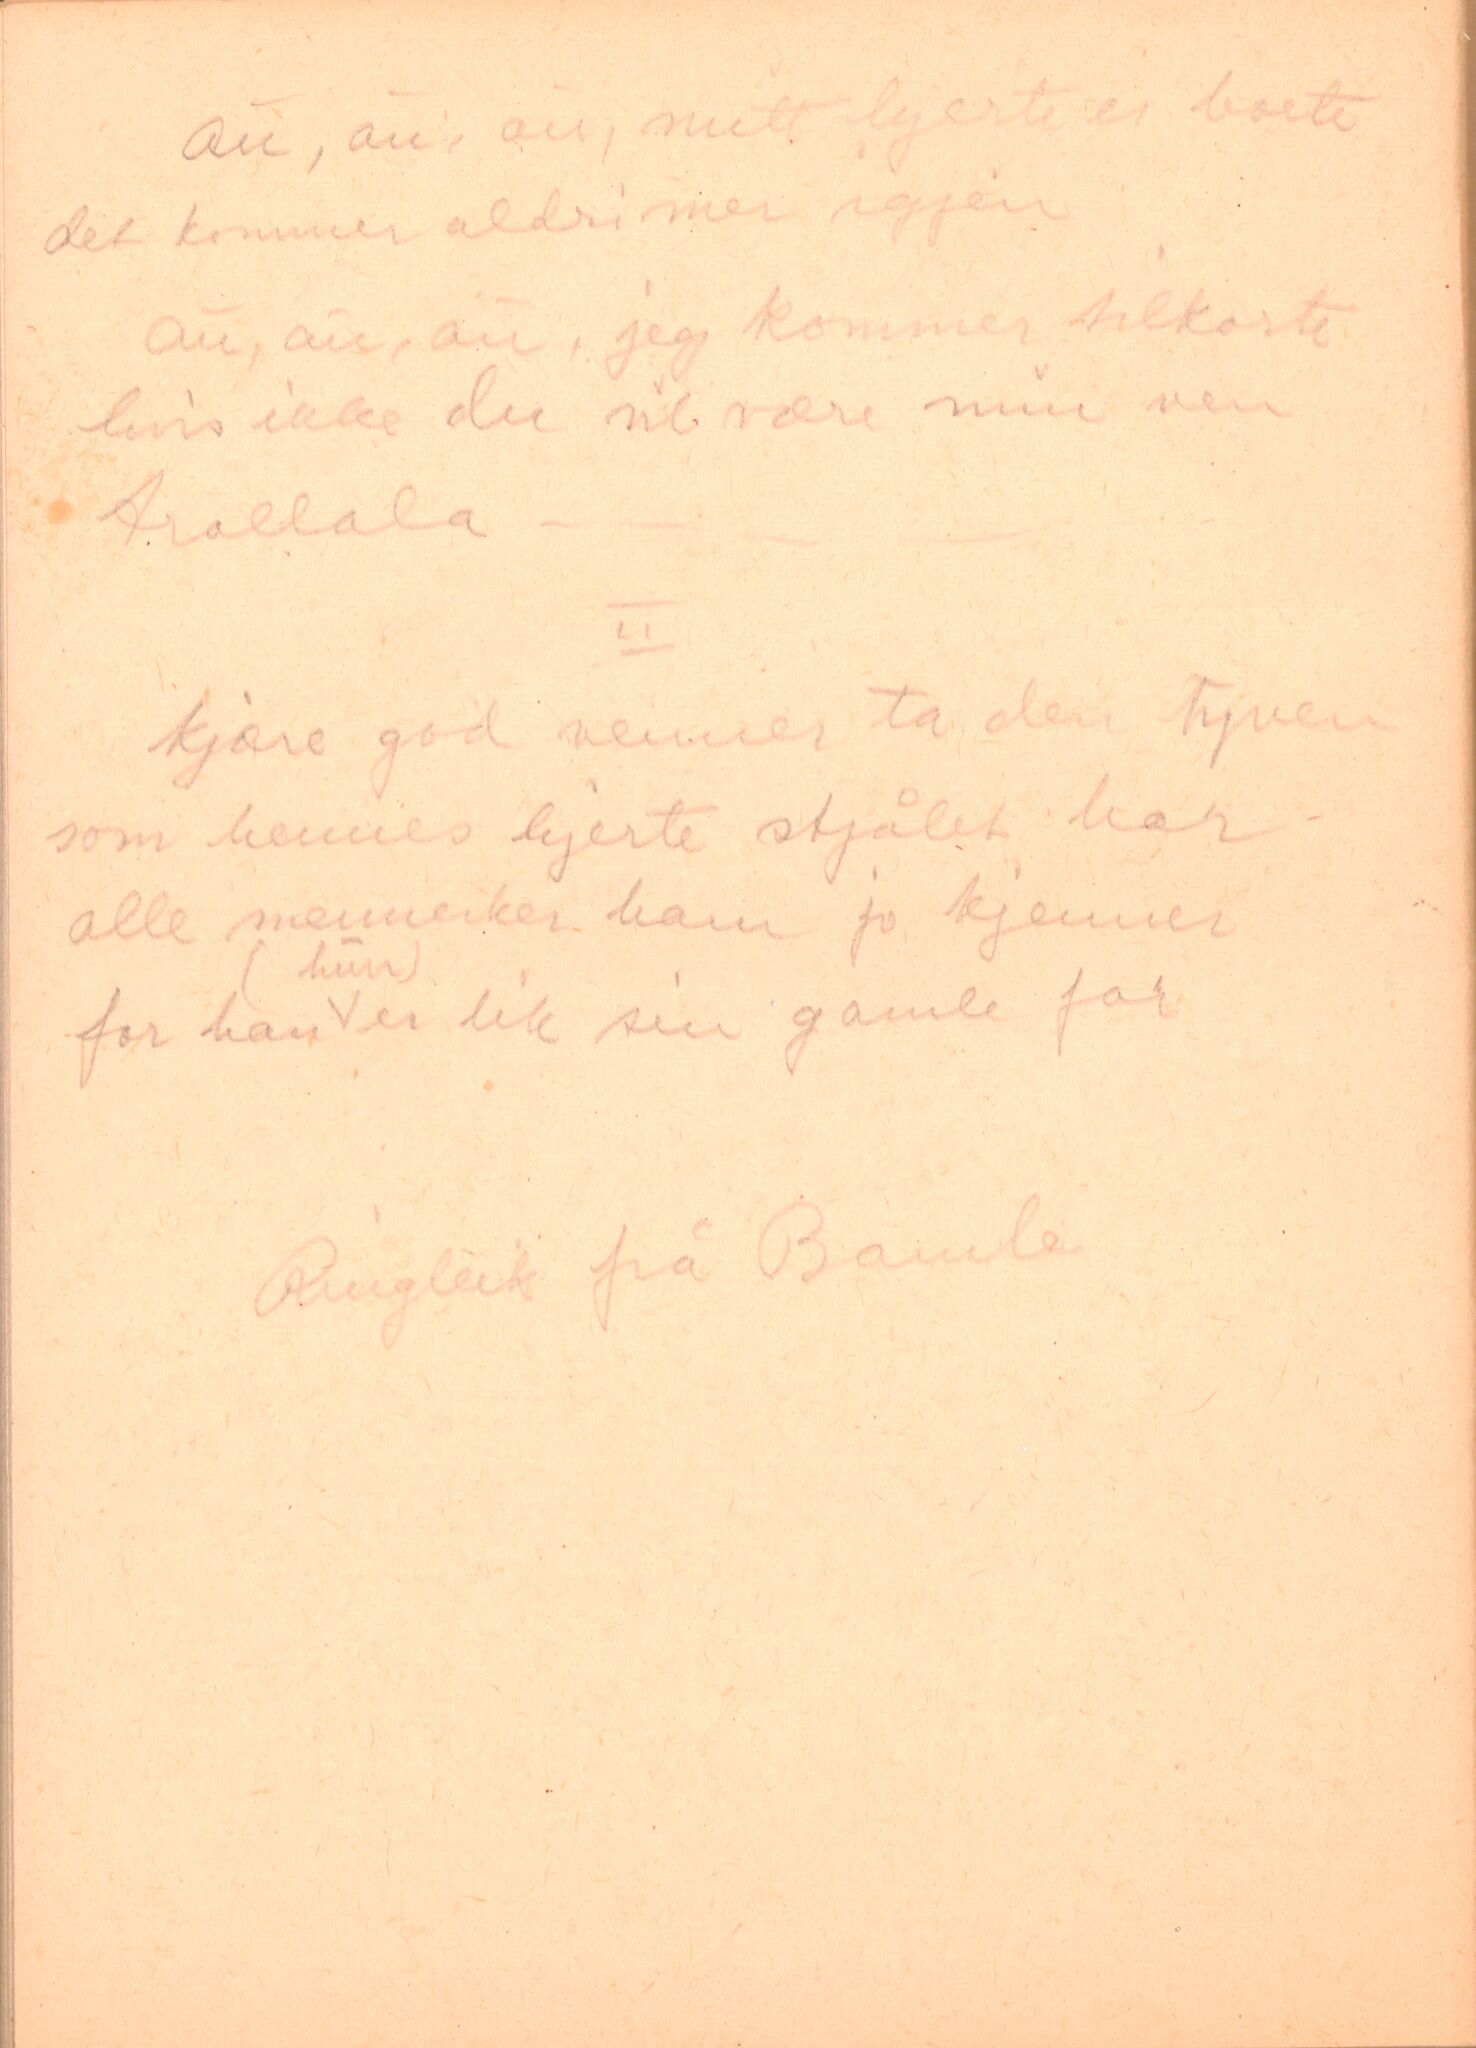 au, au, au, mitt hjerte er borte
det kommer aldri mer igjen
au, au, au, jeg kommer tilkorte
hvis ikke du vil være min ven
trallala — — — —
II
kjære god venner ta den tyven
som hennes hjerte stjålet har -
alle mennesker ham jo kjenner
(hun)
for han er lik sin gamle far
Ringleik frå Bamle